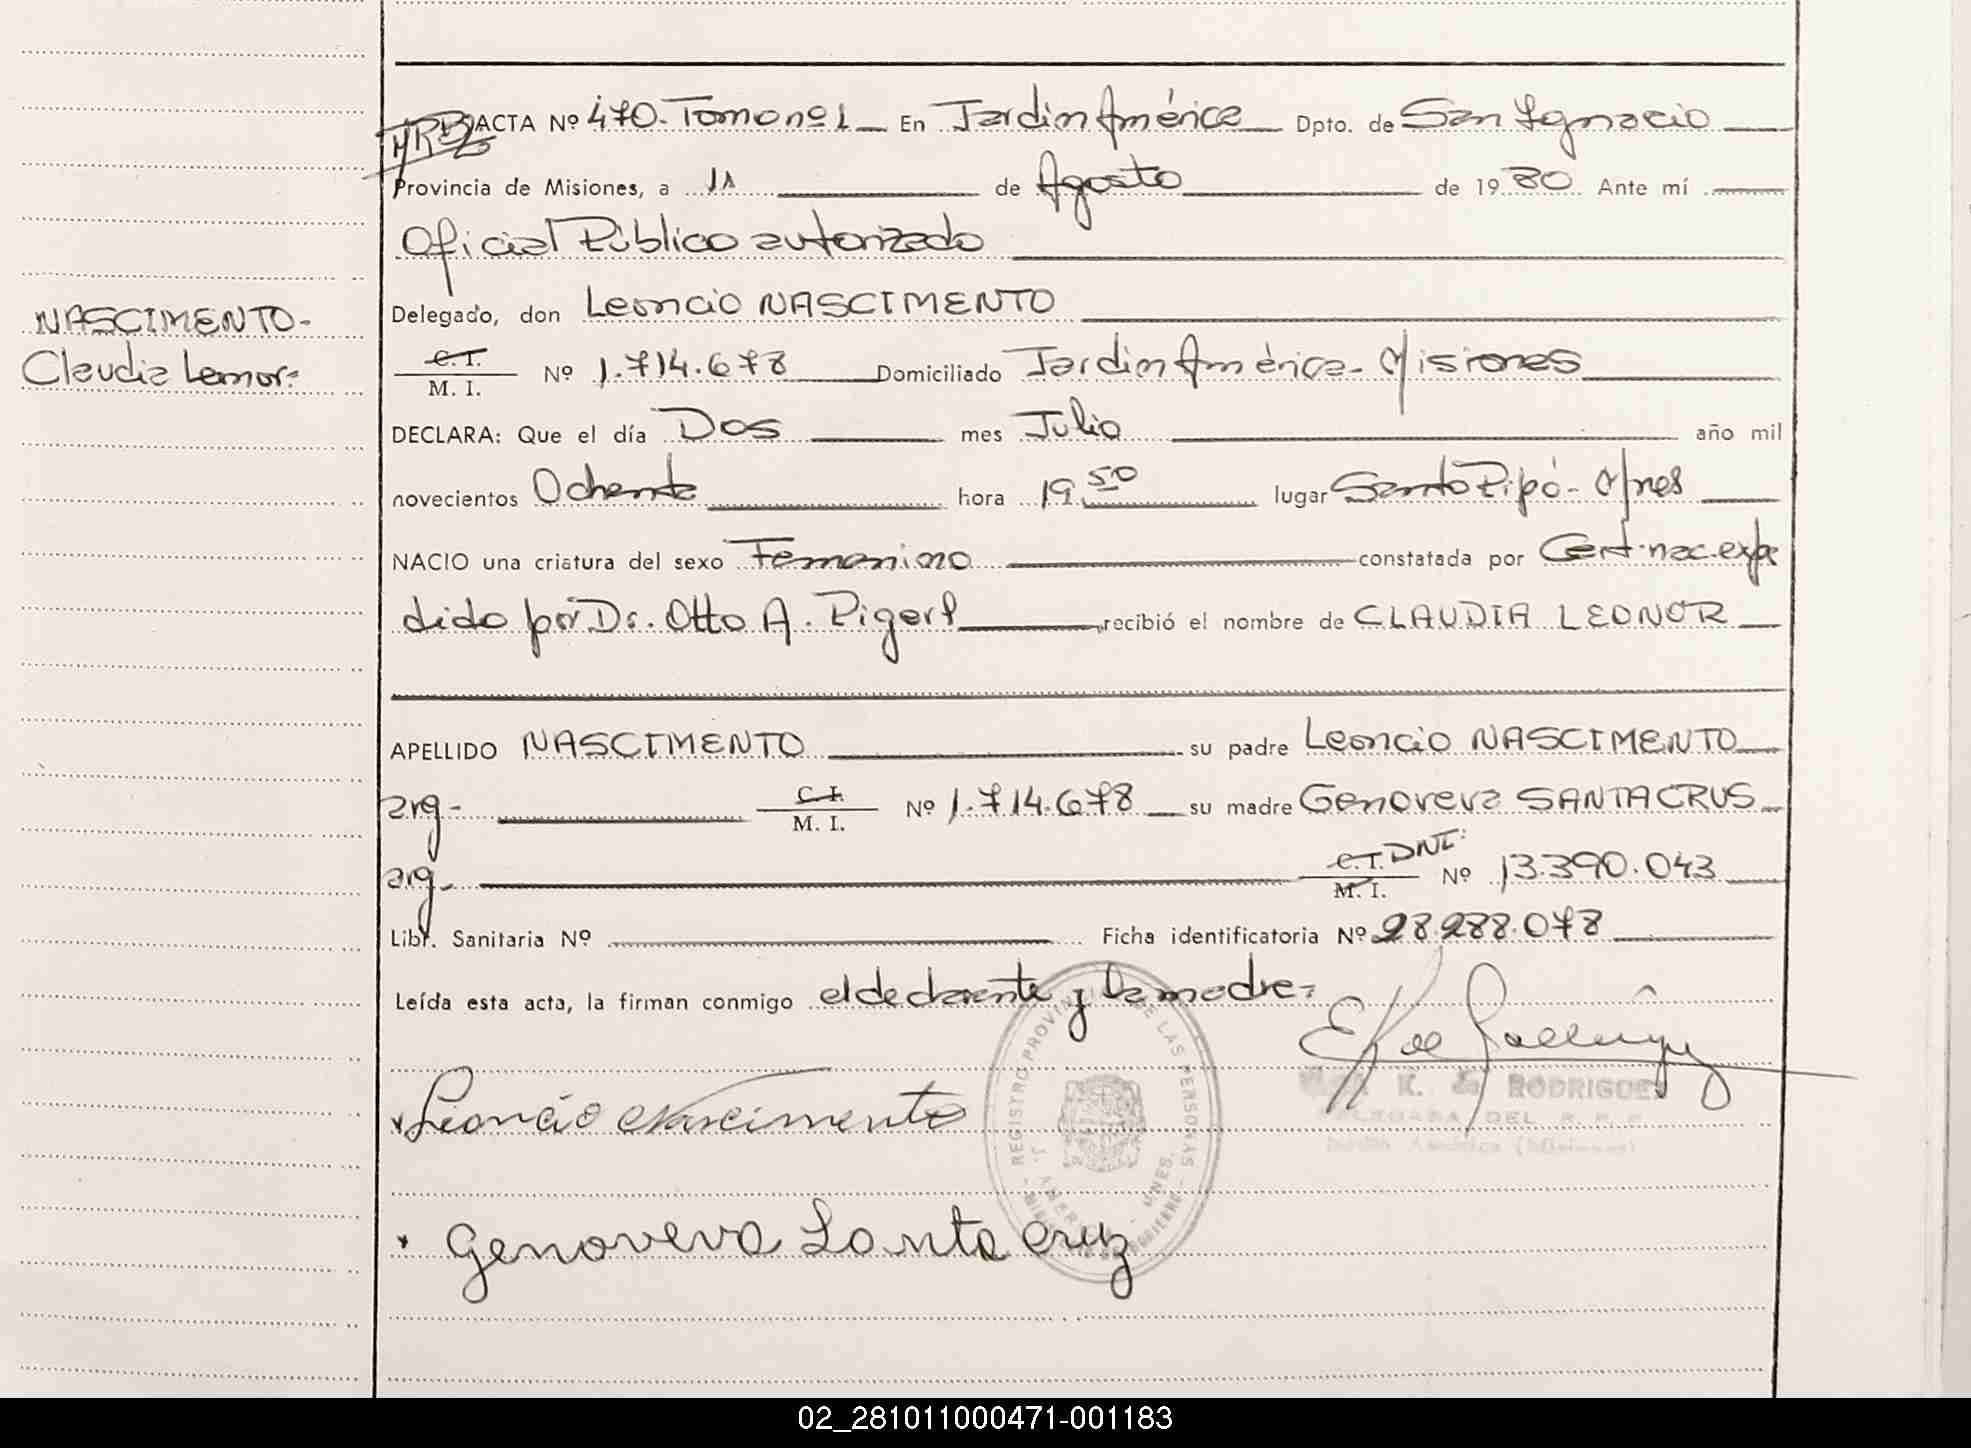 ACTA Nº 470. Tomo nº 1 En Jardin América Dpto. de San Ignacio
Provincia de Misiones, a 11 de Agosto de 1980 Ante mí
Oficial Público autorizado
NASCIMENTO-
Claudia Leonor:
Delegado, don Leoncio NASCIMENTO
C.I.
M. I. Nº 1.714.678 Domiciliado Jardin América- Misiones
DECLARA: Que el día Dos mes Julio año mil
novecientos Ochenta hora 19.50 lugar Santo Pipó- Mnes
NACIO una criatura del sexo Femenino constatada por Cert. nac. expe
dido por Dr. Otto A. Pigerl recibió el nombre de CLAUDIA LEONOR
APELLIDO NASCIMENTO su padre Leoncio NASCIMENTO
arg- C.I.
M. I. Nº 1.714.678 su madre Genoveva SANTACRUS
arg- C.I. DNI:
M. I. Nº 13.390.043
Libr. Sanitaria Nº Ficha identificatoria Nº 28.288.078
Leída esta acta, la firman conmigo el declarante y la madre:
Leoncio Nascimento
REGISTRO PROVINCIAL DE LAS PERSONAS
K. de RODRIGUES
DELEGADA DEL R. P. P.
Jardín América (Misiones)
Genoveva Santa Cruz
02_281011000471-001183